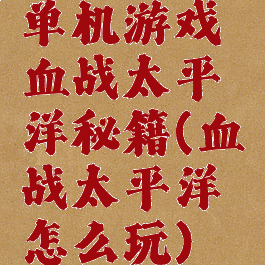 单机游戏
血战太平
洋秘籍(血
战太平洋
怎么玩)